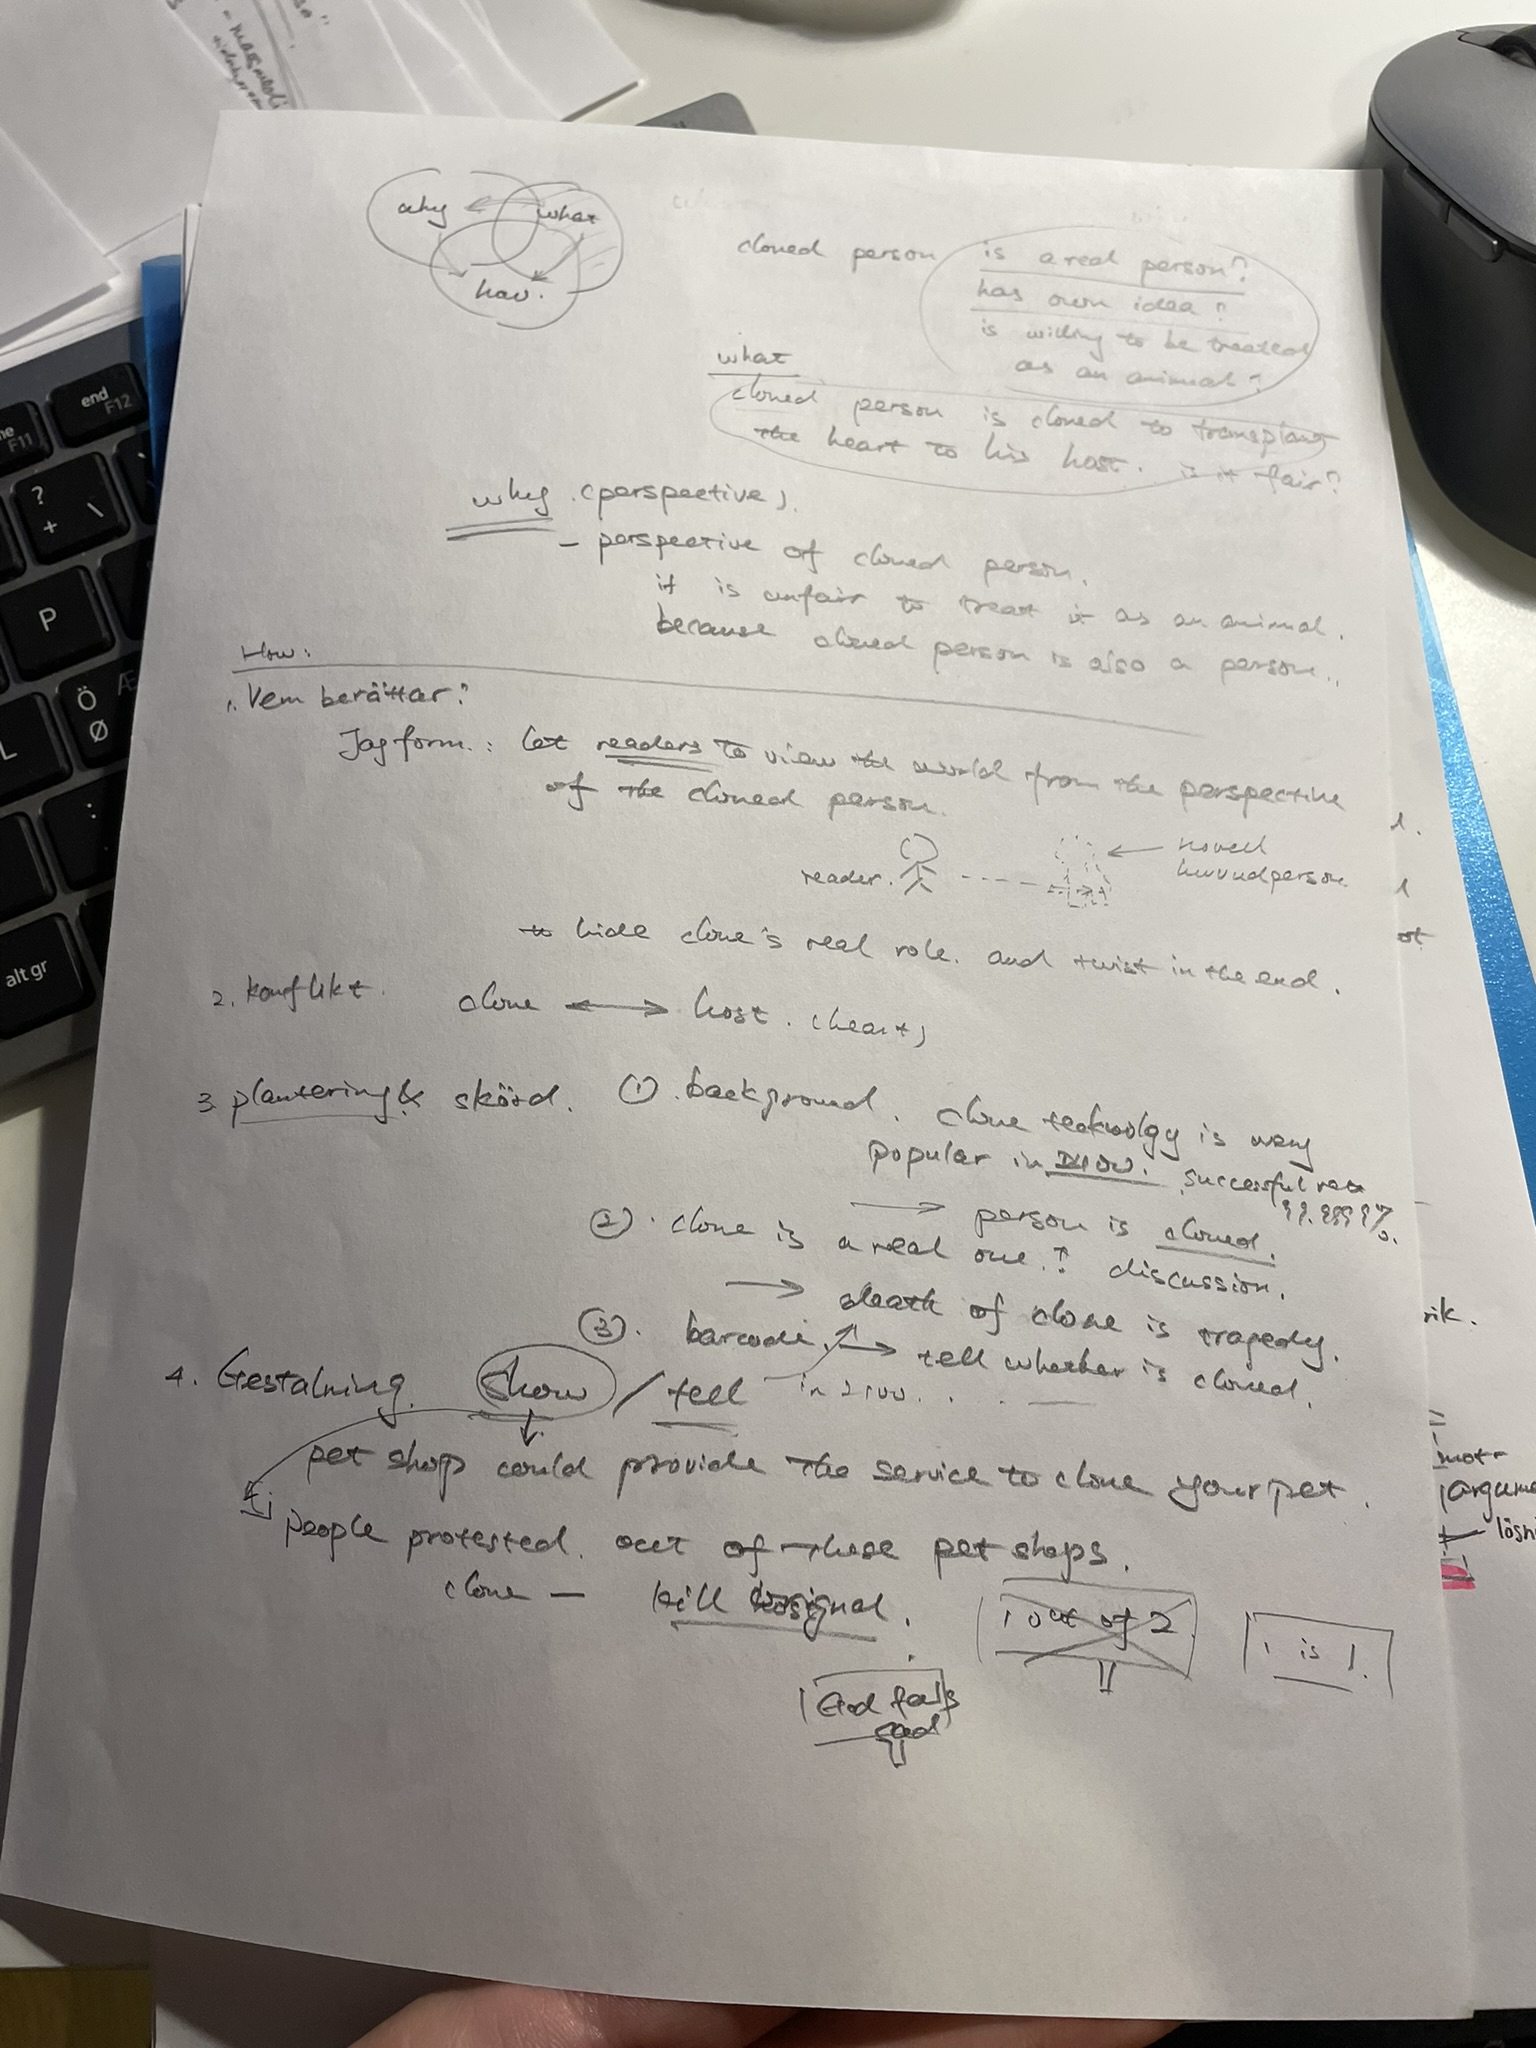 why what
how.
cloned person is a real person?
has own idea?
is willing to be treated
as an animal?
what
cloned person is cloned to transplant
the heart to his host. is it fair?
why (perspective).
- perspective of cloned person.
it is unfair to treat it as an animal.
because cloned person is also a person..
How:
1. Vem berättar?
Jag form.: let readers to view the world from the perspective
of the cloned person.
reader. novell
huvudperson.
hide clone's real role. and twist in the end.
2. konflikt. clone ⟷ host. (heart)
3. plantering & skörd. ① background. clone technolgy is very
popular in successful rate
99.9999%.
→ person is cloned.
② clone is a real one? discussion.
→ death of clone is tragedy.
③. barcode. → tell whether is cloned.
4. Gestalning. show / tell in 2100. . .
pet shops could provide the service to clone your pet.
people protested. out of these pet shops.
clone — kill
1 out of 2
1 is 1.
God
end
F12
F11
?
+
\
P
Ö
Ø
Æ
L
;
:
alt gr
rik.
mot-
argume
lösni